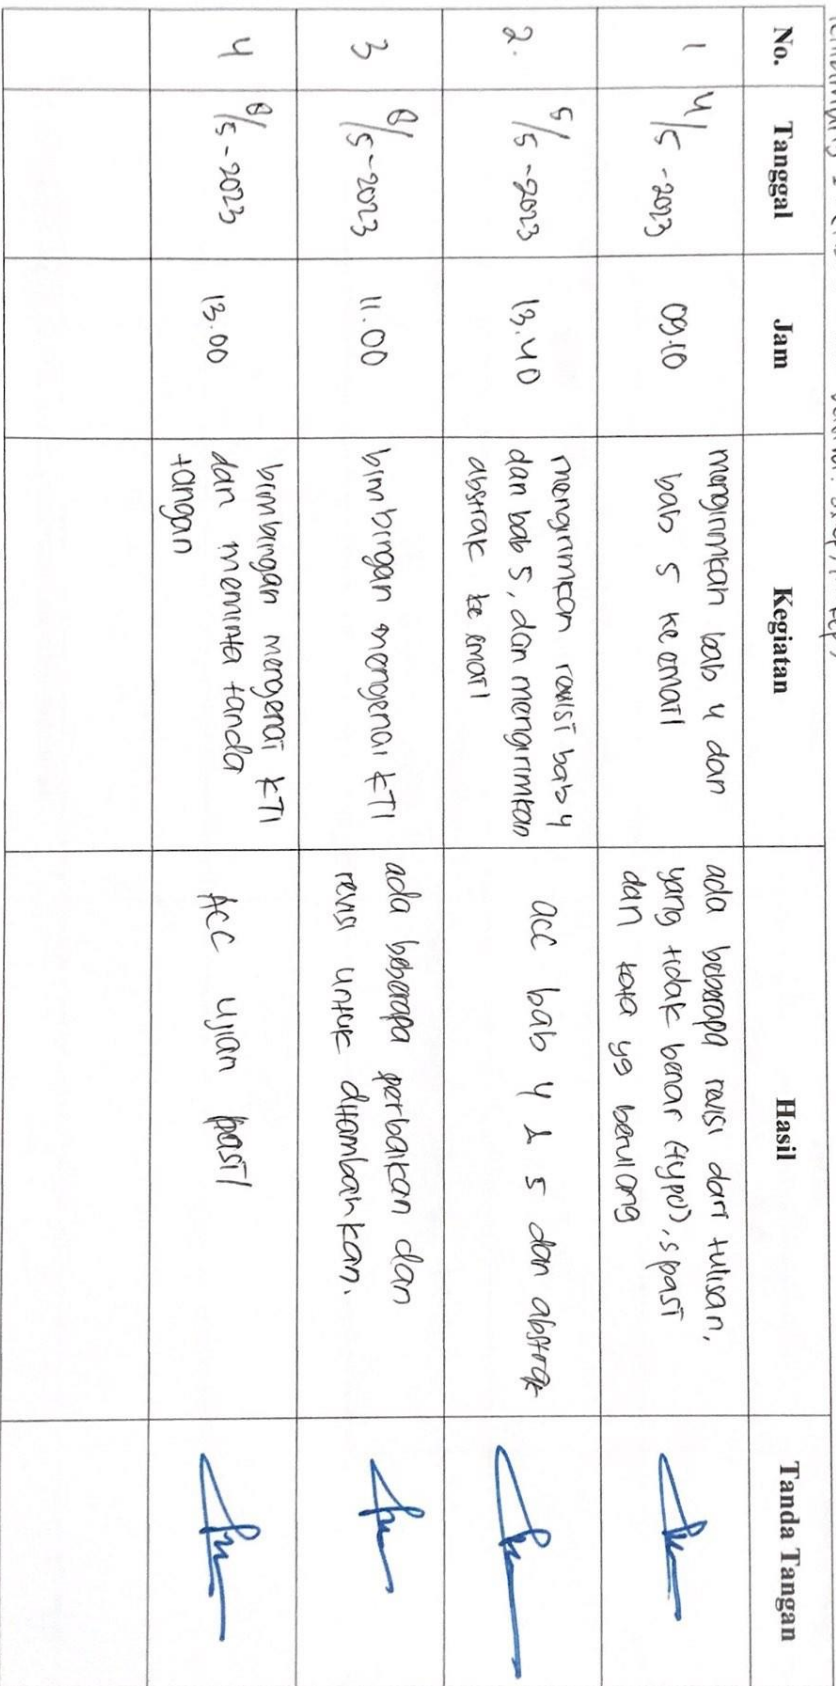 No. Tanggal Jam Kegiatan Hasil Tanda Tangan
1 4/5-2023 09.10
mengirimkan bab 4 dan
bab 5 ke email
ada beberapa revisi dari tulisan,
yang tidak benar (typo), spasi
dan kata yg berulang
2. 5/5-2023 13.40
mengirimkan revisi bab 4
dan bab 5, dan mengirimkan
abstrak ke email
acc bab 4 & 5 dan abstrak
3 8/5-2023 11.00
bimbingan mengenai KTI
ada beberapa perbaikan dan
revisi untuk ditambahkan.
4 8/5-2023 13.00
bimbingan mengenai KTI
dan meminta tanda
tangan
ACC ujian hasil